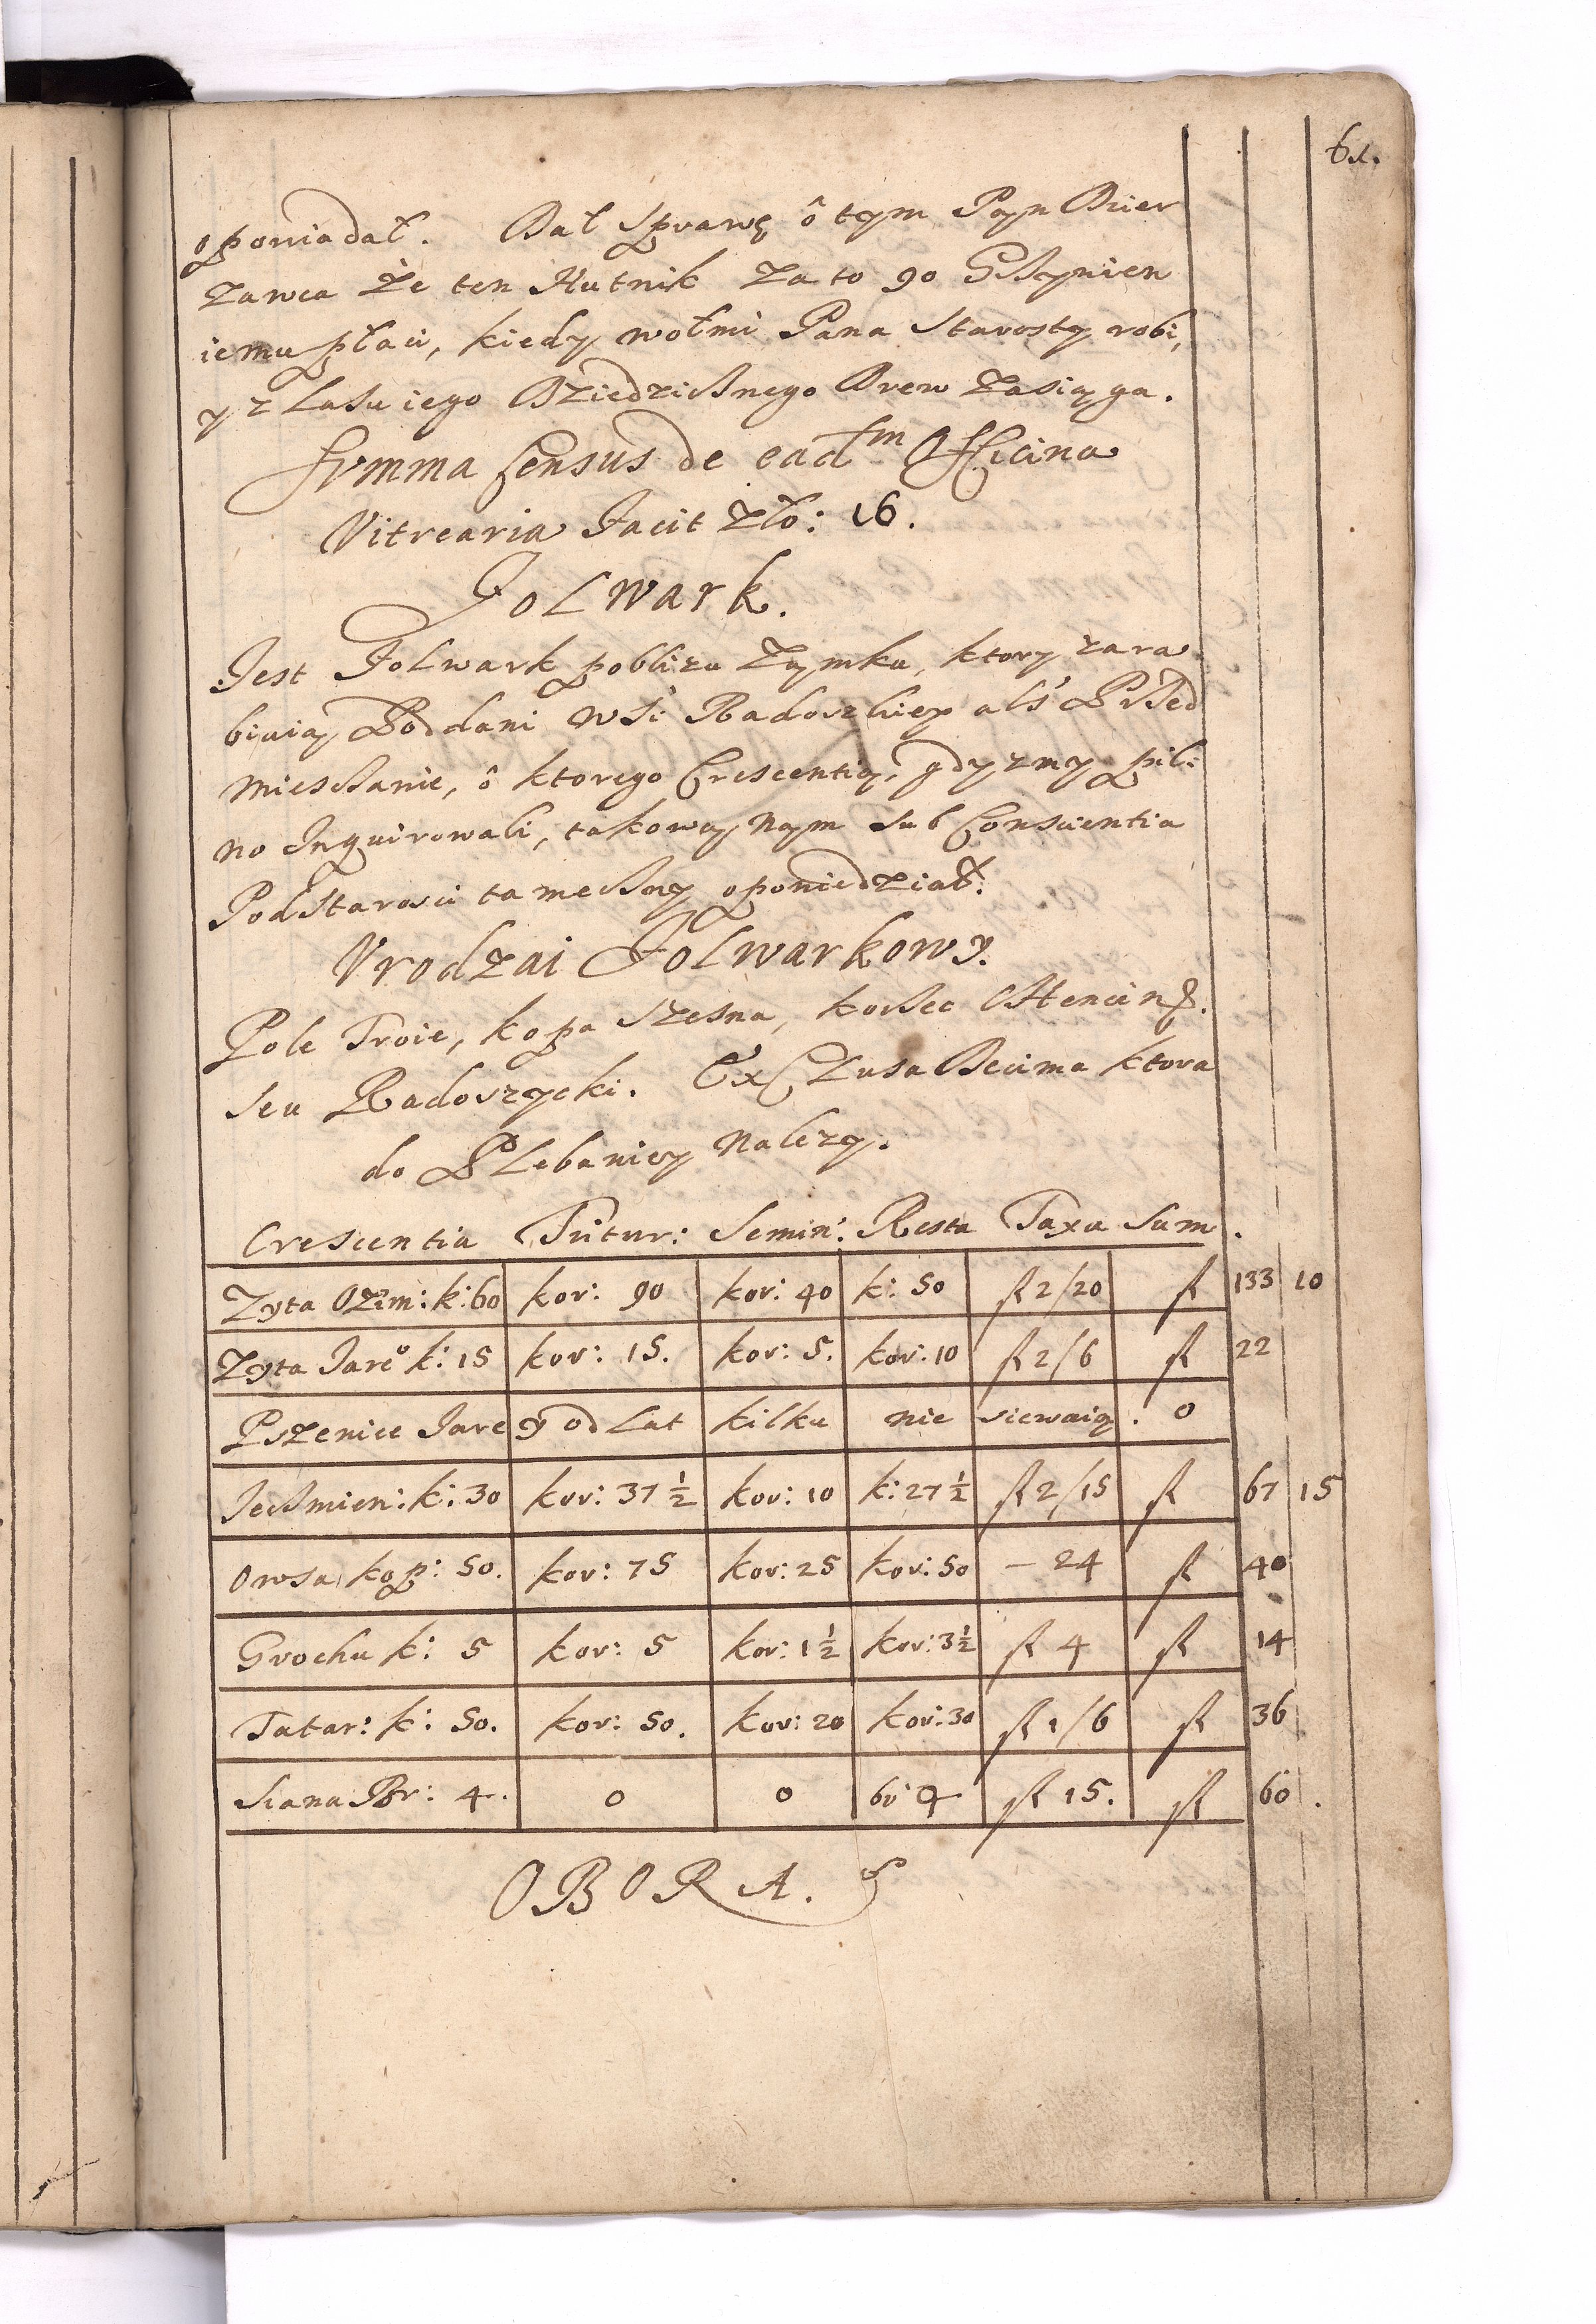 61.
opowiadał. Dał sprawę ô tym Payn Dzier
zawca że ten Hutnik za to 90 Grzywien
iemu płaci, kiedy wołmi Pana Starosty robi,
y z Lasu iego Dziedzicznego Drew zasięga.
Summa Census de ead^m Officina
Vitrearia Facit Zło: 16.
Folwark.
Jest Folwark poblizu Zamku, ktory zara
biaią Poddani wsi Radoszkiey als Przed
miesczanie, ô ktorego Crescentią, gdyzmy pil:
no Inquirowali, takową nąm sub Conscientia
Podstarosci tameczny opowiedział.
Vrodzai Folwarkowy.
Pole Troie, kopa szesna, korzec
seu Radoszycki. Exclusa Decima ktora
do Plebaniey nalezy.
Crescentia Tritur: Semin: Resta Taxa Sum.
Zyta Ozim: k: 60 kor: 90 kor: 40 k: 50 fl 2/20 fl 133 10
Zyta Jare° k: 15 kor: 15. kor: 5. kor: 10 fl 2/6 fl 22
Pszenice Jarey od Lat kilku nie siewaią. 0
Jeczmien: k: 30 kor: 37 ½ kor: 10 k: 27 ½ fl 2/15 fl 67 15
Owsa kop: 50. kor: 75 kor: 25 kor: 50 — 24 fl 40
Grochu k: 5 kor: 5 kor: 1 ½ kor: 3 ½ fl 4 fl 14
Tatar: k: 50. kor: 50. kor: 20 kor: 30 fl 1/6 fl 36
Siana Br: 4. 0 0 fl 15. fl 60.
OBORA.